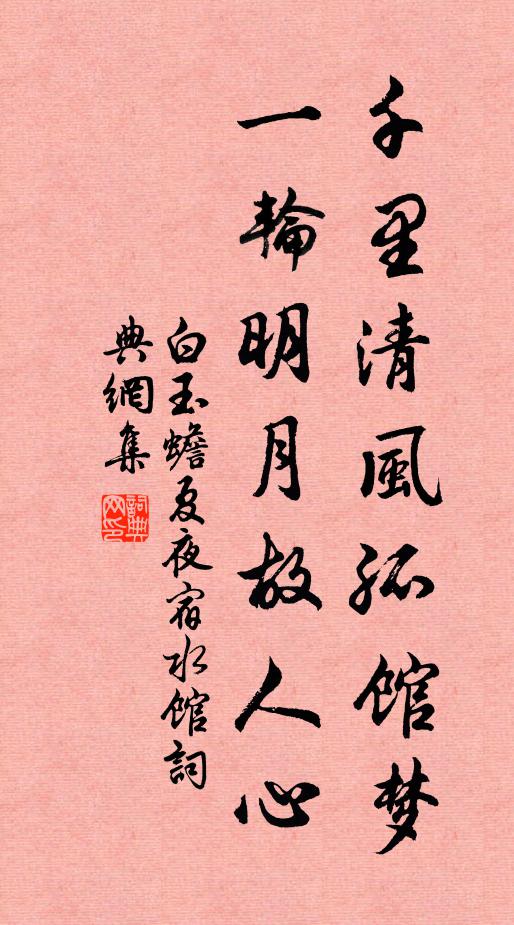 千里清風孤館梦
一輪明月故人心
白玉蟾夏夜宿水館詞
典網集
詞典网印